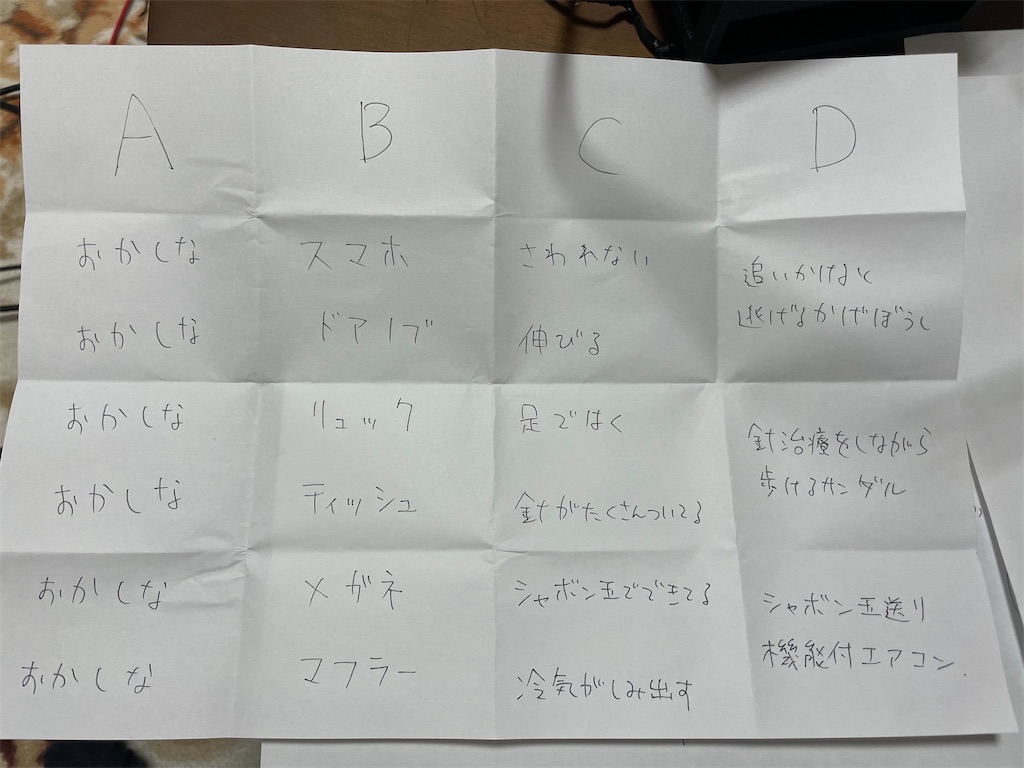 A B C D
おかしな スマホ さわれない
追いかけないと
おかしな ドアノブ 伸びる
逃げるかげぼうし
おかしな リュック 足ではく
針治療をしながら
おかしな ティッシュ 針がたくさんついてる
歩けるサンダル
おかしな メガネ シャボン玉でできてる
シャボン玉送り
おかしな マフラー 冷気がしみ出す
機能付エアコン.